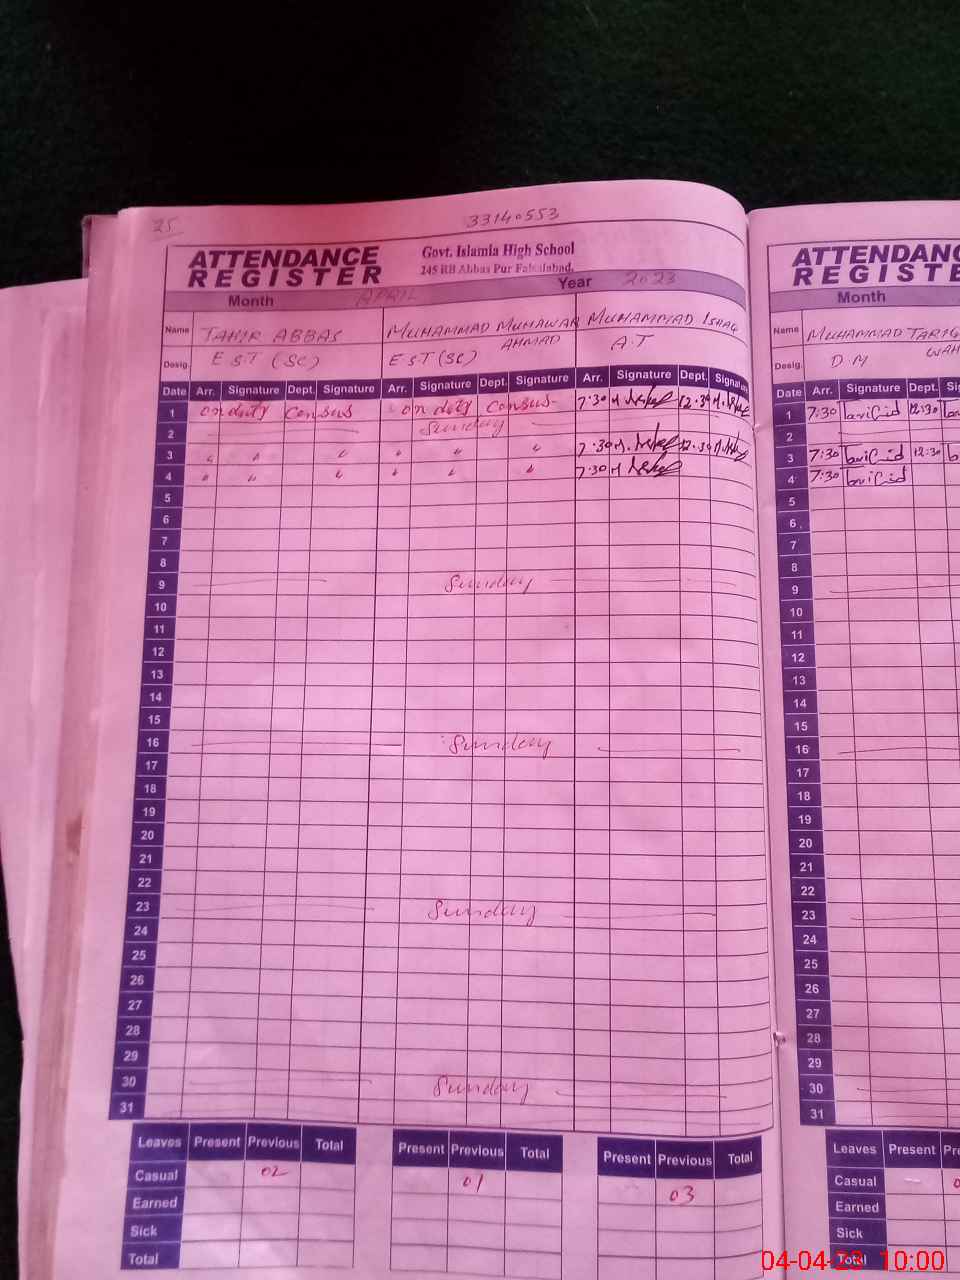 25
33140553
ATTENDANCE
REGISTER
Govt. Islamia High School
245 RB Abbas Pur Faisalabad.
Month APRIL Year 2023
Name TAHIR ABBAS MUHAMMAD MUNAWAR AHMAD MUHAMMAD ISHAQ
Desig. EST (SC) EST (SC) A.T
Date Arr. Signature Dept. Signature Arr. Signature Dept. Signature Arr. Signature Dept. Signature
1 on duty Consus on duty Consus 7:30 12:30
2 Sunday
3 " " " " " " 7:30 12:30
4 " " " " " " 7:30
5
6
7
8
9 Sunday
10
11
12
13
14
15
16 Sunday
17
18
19
20
21
22
23 Sunday
24
25
26
27
28
29
30 Sunday
31
Leaves Present Previous Total Present Previous Total Present Previous Total
Casual 02 01 03
Earned
Sick
Total
ATTENDANC
REGISTE
Month
Name MUHAMMAD TARIQ
Desig. D M
Date Arr. Signature Dept. Si
1 7:30 12:30
2
3 7:30 12:30
4 7:30
5
6
7
8
9
10
11
12
13
14
15
16
17
18
19
20
21
22
23
24
25
26
27
28
29
30
31
Leaves Present Pre
Casual
Earned
Sick
Total
04-04-23 10:00